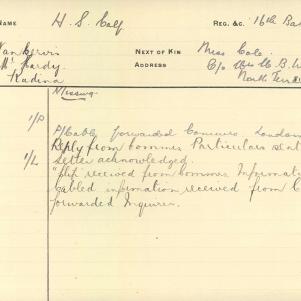 NAME H. S. Calf REG. &C. 16th Bat
NEXT OF KIN Miss Cole.
ADDRESS C/o
Kadina North Terr
Missing.
1/P P/Cable forwarded Commrs. London
Reply from Commrs Particulars sent
1/L Letter acknowledged.
received from Commrs Informati
cabled information received from
forwarded Inquirer.